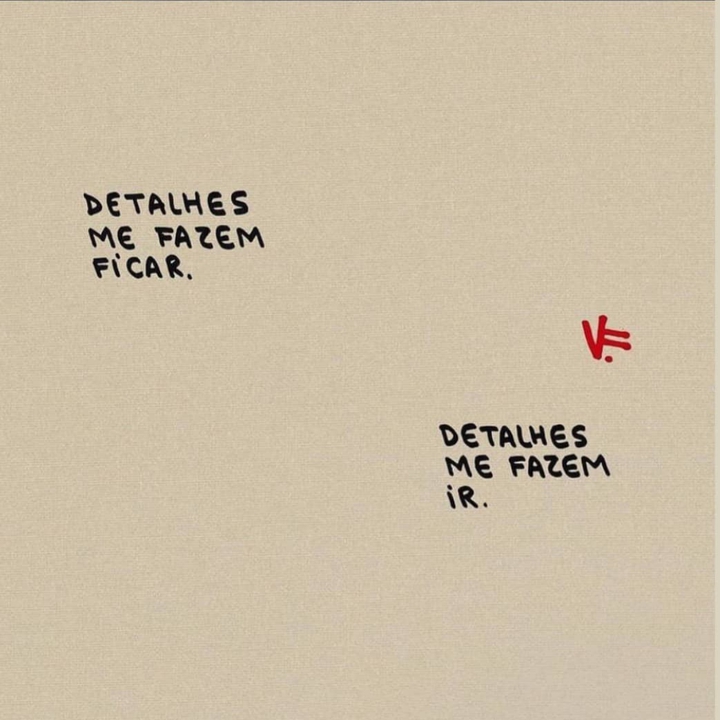 DETALHES
ME FAZEM
FiCAR.
VF.
DETALHES
ME FAZEM
iR.